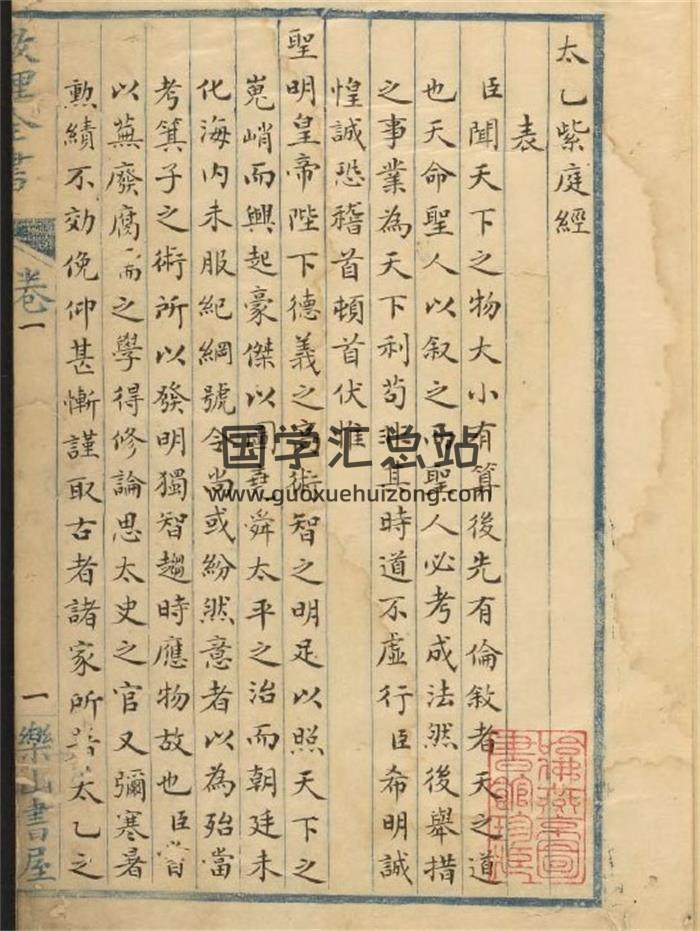 太乙紫庭經
表
臣聞天下之物大小有算後先有倫敘者天之道
也天命聖人以叙之聖人必考成法然後舉措
之事業為天下利苟其時道不虛行臣希明誠
惶誠恐稽首頓首伏惟
聖明皇帝陛下德義之高術智之明足以照天下之
嵬峭而興起豪傑以堯舜太平之治而朝廷未
化海内未服紀綱號令尚或紛然意者以為殆當
考箕子之術所以發明獨智趨時應物故也臣嘗
以蕪廢腐之學得修論思太史之官又彌寒暑
勲績不効俛仰甚慚謹取古者諸家所太乙之
數理全書
卷一
一
樂山書屋
哈佛燕京圖
書館珍藏
国学汇总站
www.guoxuehuizong.com